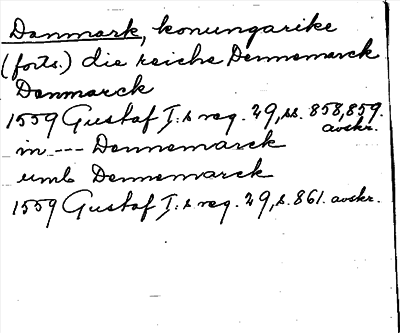 Danmark, konungarike
(forts.) die reichs Dennemarck
Denmarck
1559 Gustaf I:s reg. 29, ss. 858, 859.
avskr.
in --- Dennemarck
umb Dennemarck
1559 Gustaf I:s reg. 29, s. 861. avskr.